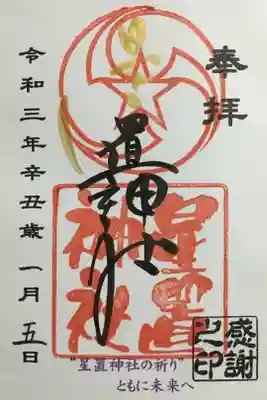 奉拝
星置神社
星置
神社
令和三年辛丑歳一月五日
感謝
之印
"星置神社の祈り"
ともに未来へ